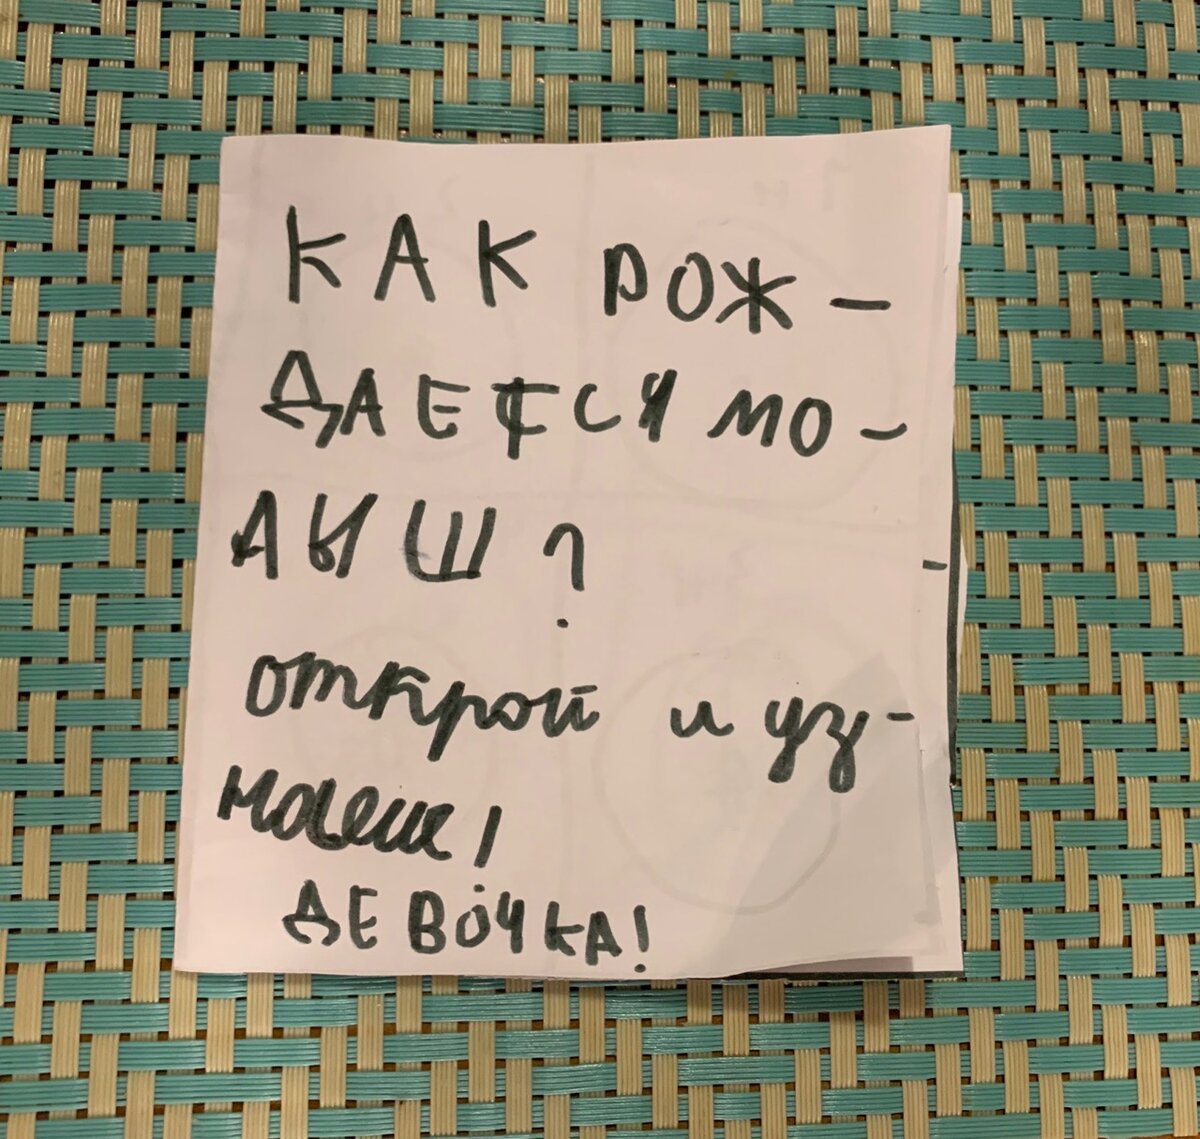 КАК РОЖ-
ДАЕТСЯ МО-
ЛЫШ?
открой и уз-
наеш!
ДЕВОЧКА!